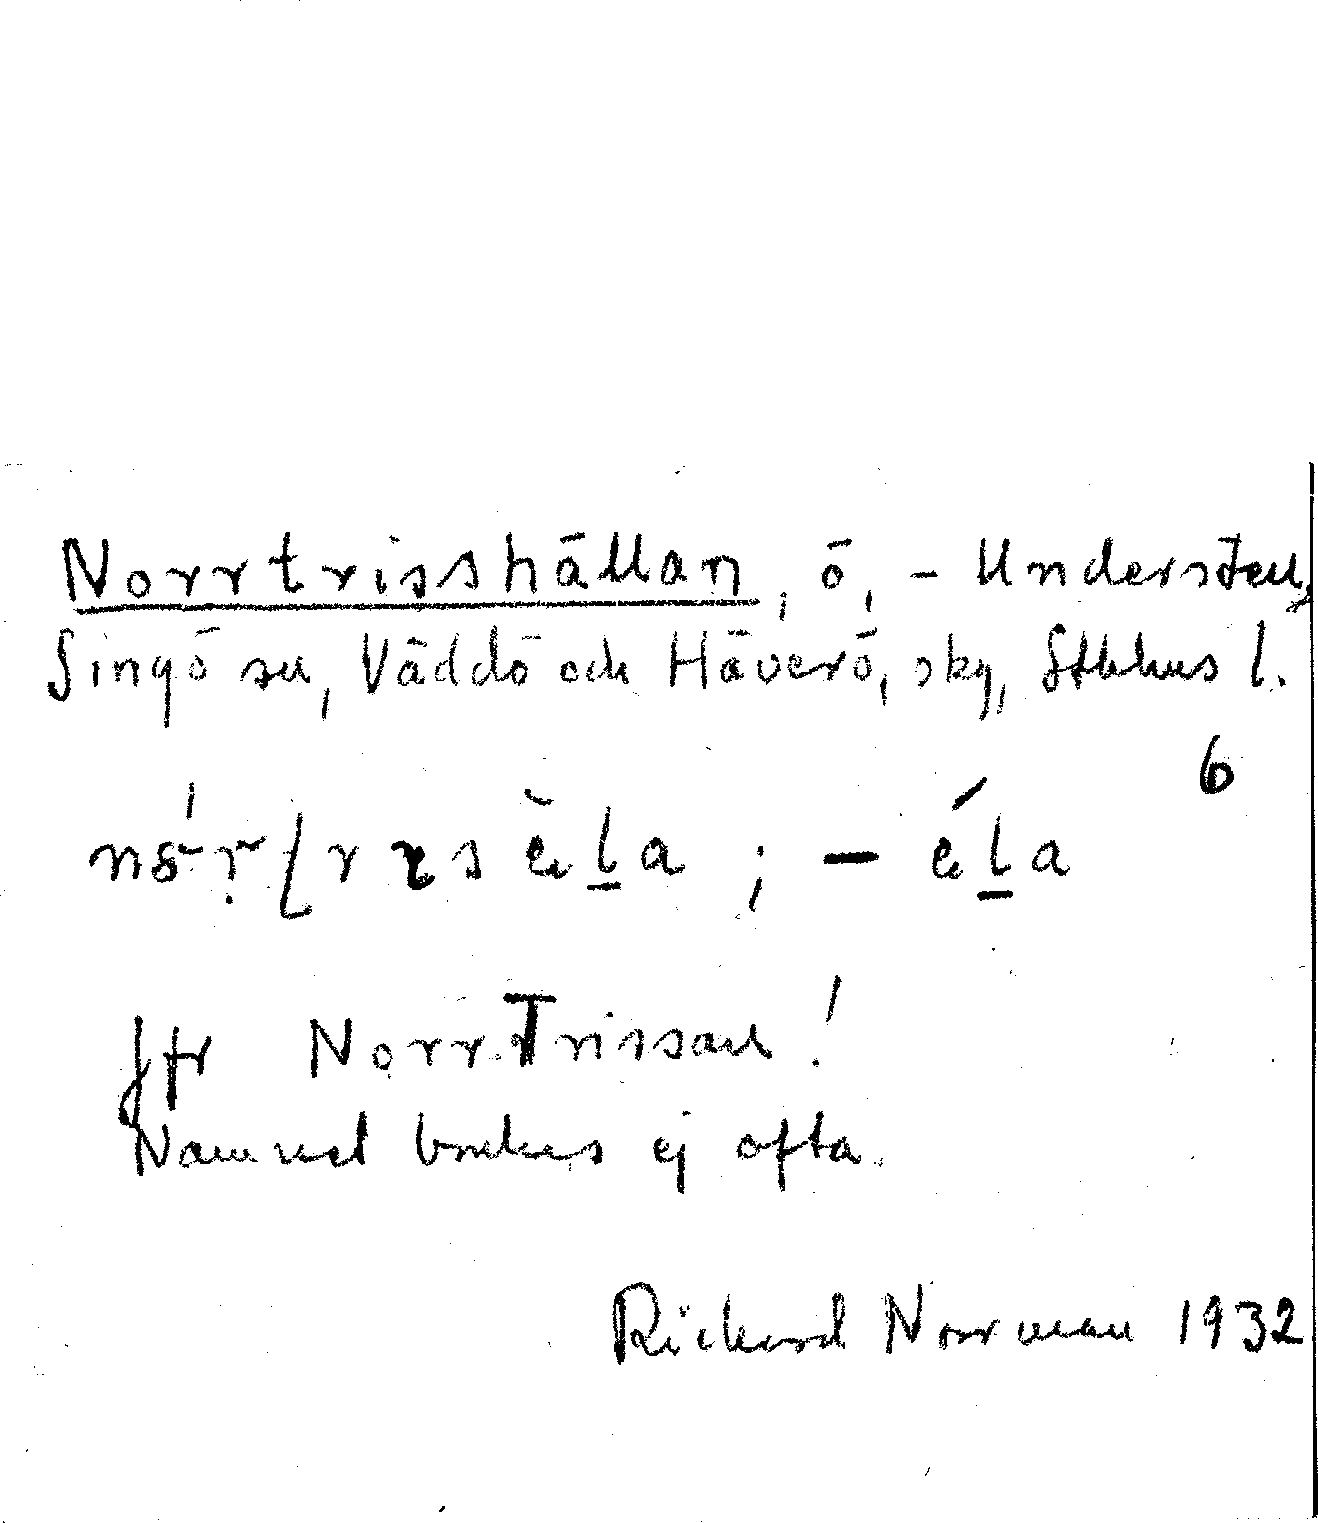 Norrtrisshällan, ö, - Understen,
Singö sn, Väddö och Häverö, skg, Sthlms l.
6
; -
jfr Norr Trissan!
Namnet brukas ej ofta.
Richard Norrman 1932